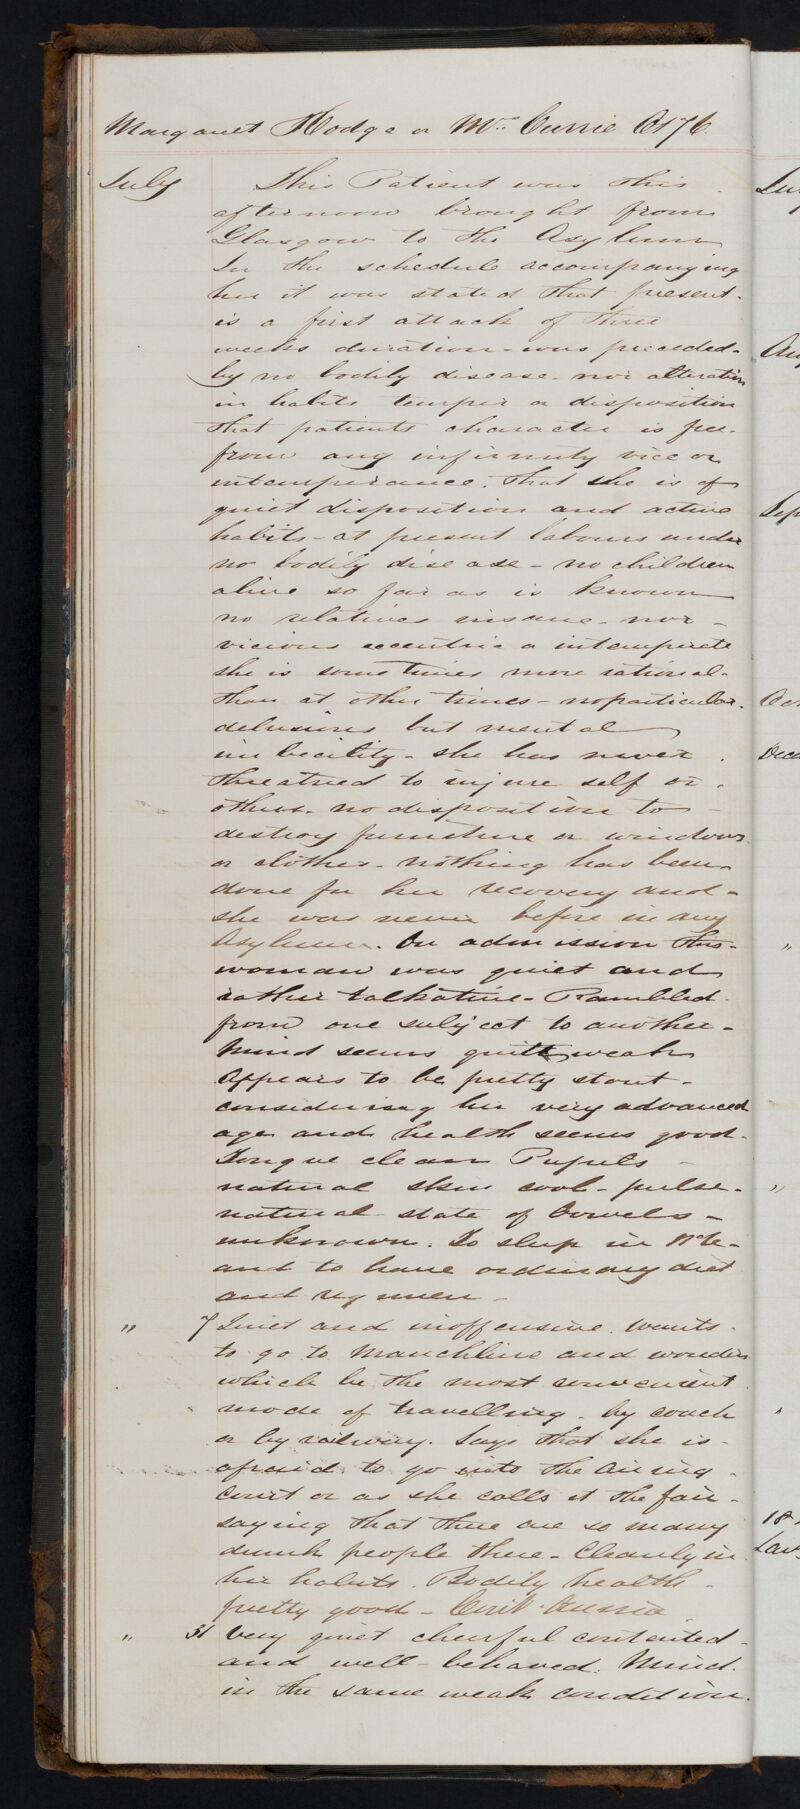 Margaret Hodge or Mrs. Currie Aet 76.
July This Patient was this
afternoon brought from
Glasgow to the Asylum
In the schedule accompanying
her it was stated that present-
is a first attack of three
weeks duration - was preceded-
by no bodily disease - nor alteration
in habits temper or disposition
that patients character is free-
from any infirmity vice or
intemperance. that she is of
quiet disposition and active
habits - at present labours under
no bodily disease - no children
alive so far as is known
no relatives insane - nor -
vicious eccentric or intemperate
she is sometimes more rational-
than at other times - no particular.
delusions but mental
imbecility - she has never
threatned to injure self or.
others - no disposition to -
destroy furniture or windows
or clothes - nothing has been
done for her recovery and -
she was never before in any
Asylum. On admission this-
woman was quiet and
rather talkative - Rambled
from one subject to another -
Mind seems quite weak
Appears to be pretty stout -
considering her very advanced
age and health seems good -
Tongue clean Pupils -
natural skin cool - pulse -
natural state of bowels -
unknown. To sleep in
and to have ordinary diet
and regimen -
" 7 Quiet and inoffensive. Wants
to go to Mauchline and wonders
which be the most convenient
mode of travelling - by coach
or by railway. Says that she is -
afraid to go into the airing -
court or as she calls it the fair -
saying that there are so many
drunk people there - Cleanly in
her habits. Bodily health -
pretty good -
" 31 Very quiet cheerful contented -
and well - behaved. Mind.
in the same weak condition.